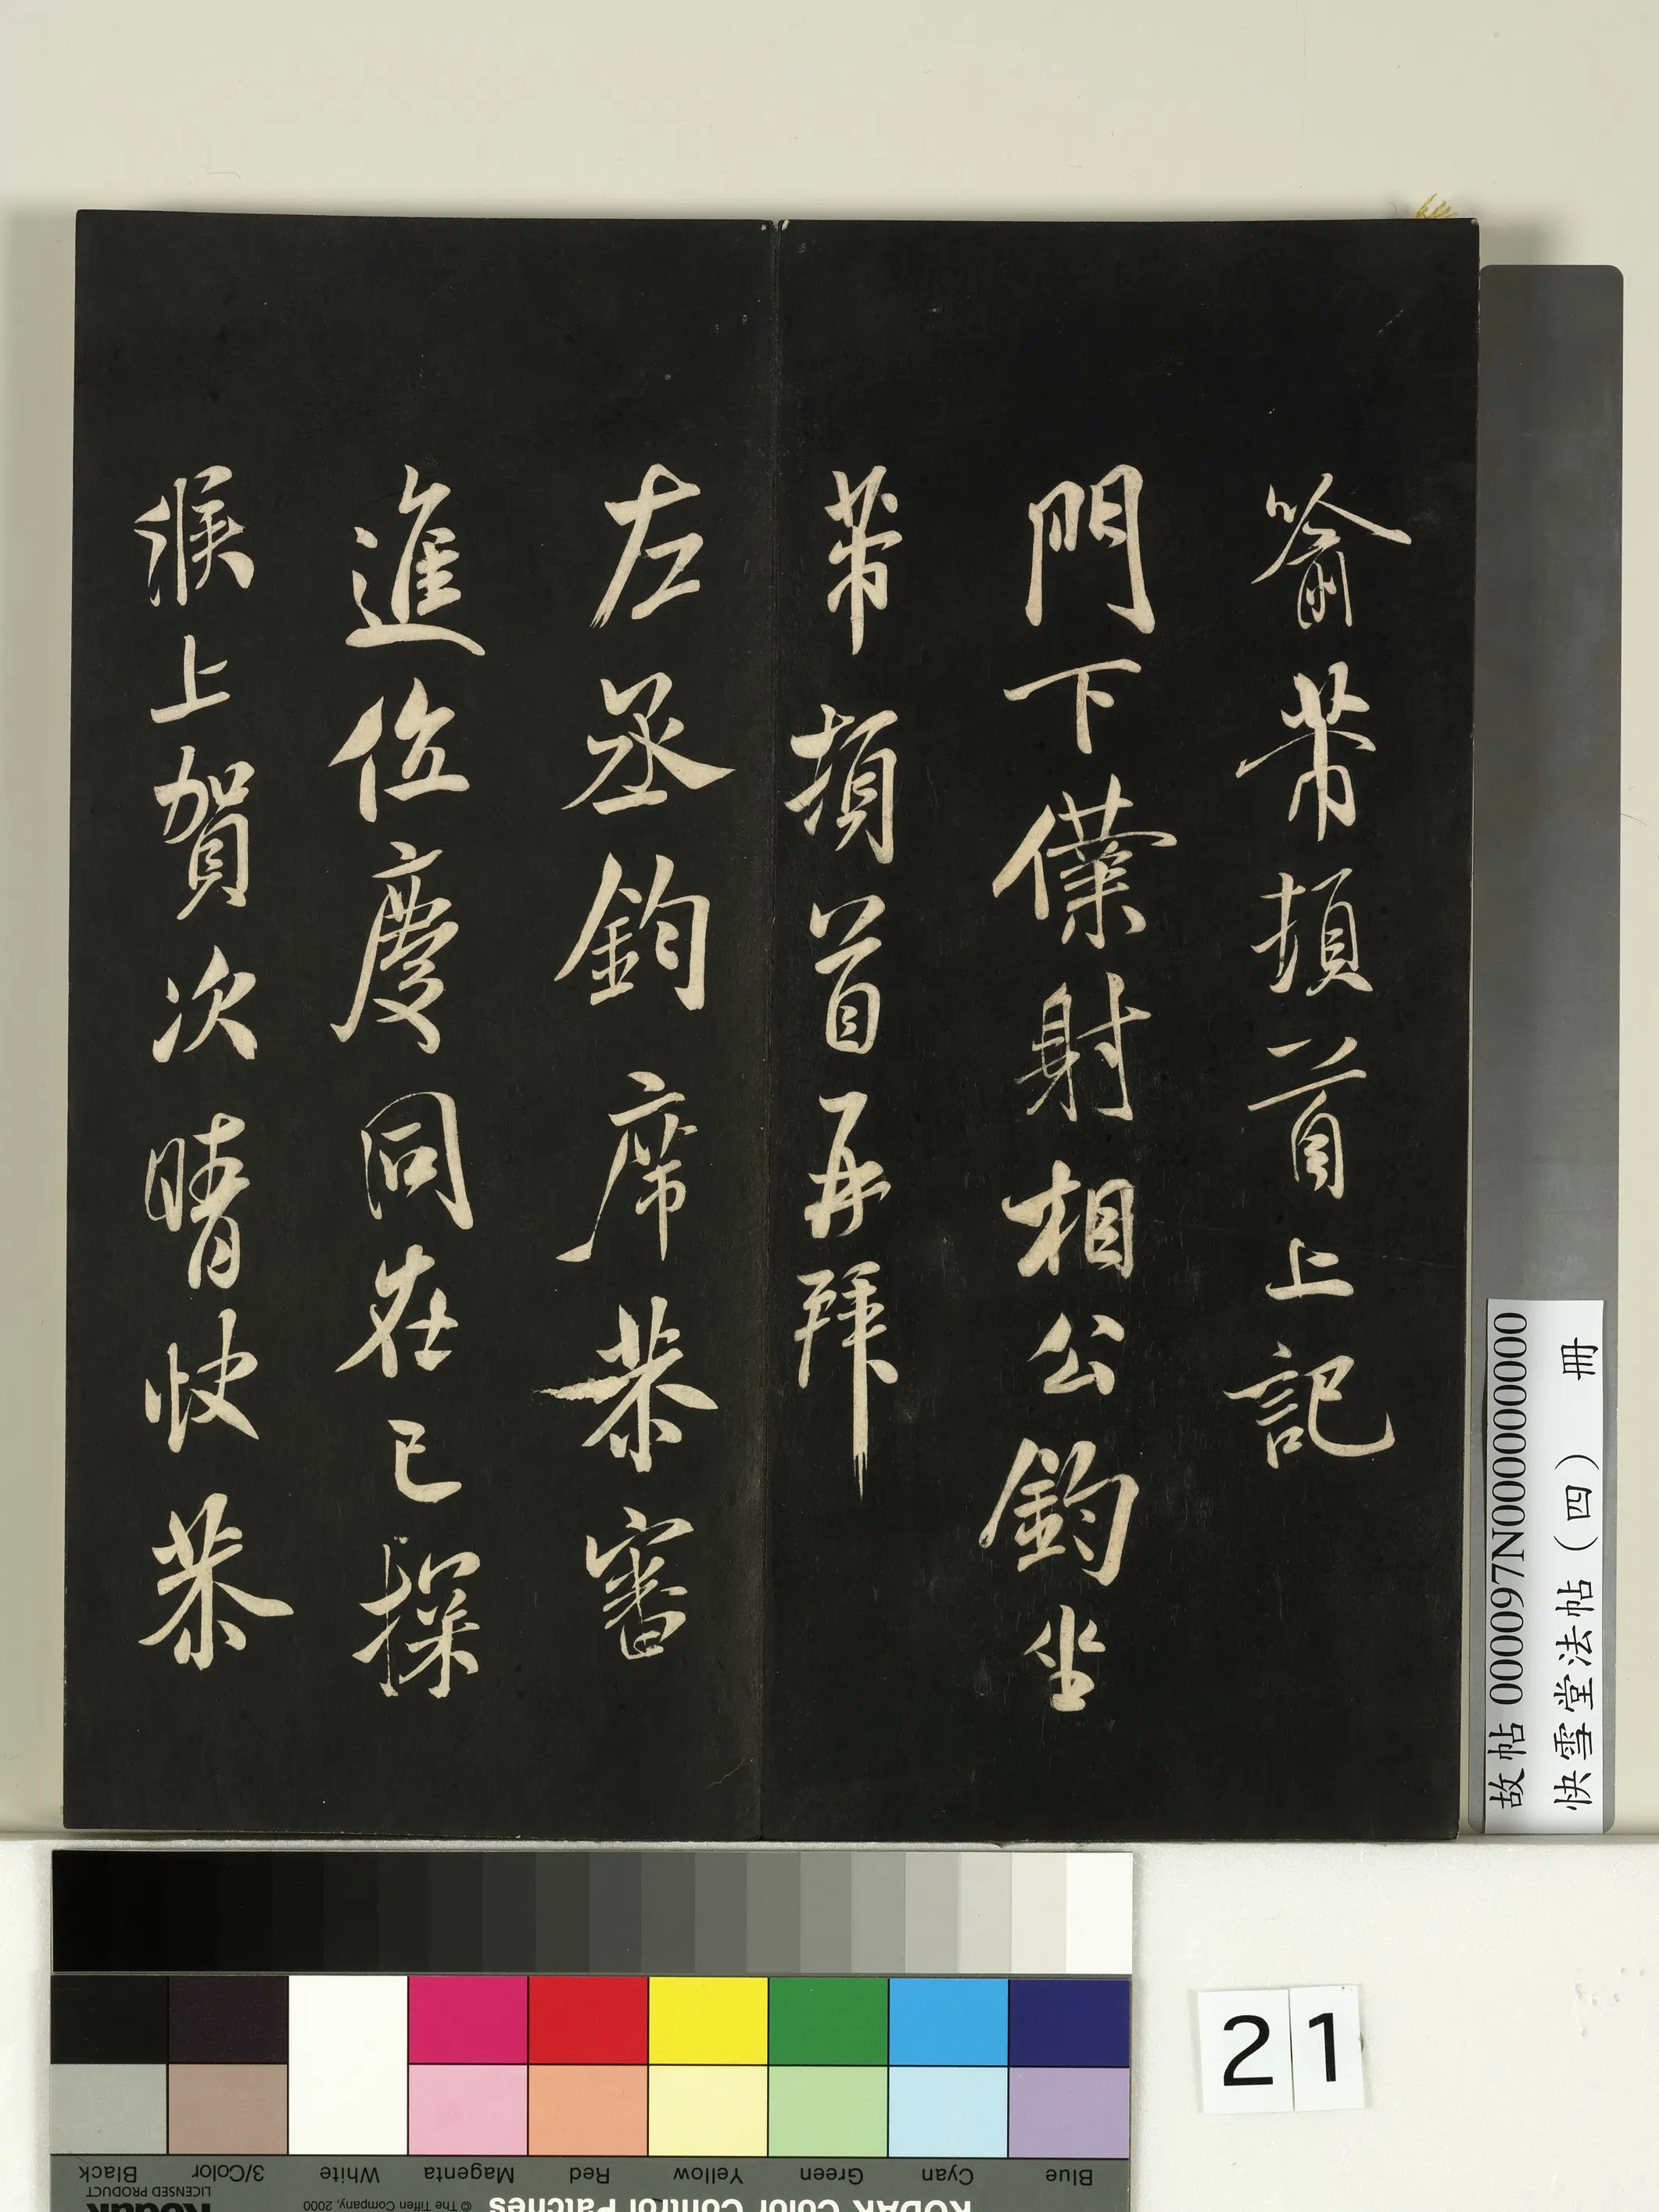 喻芾頓首上記
門下僕射相公鈞坐
芾頓首再拜
左丞鈞席恭審
進位慶同在已探
候上賀次晴快恭
故帖 000097N000000000
快雪堂法帖（四） 冊
21
KODAK Color Control Patches © The Tiffen Company, 2000
Kodak
LICENSED PRODUCT
Blue Cyan Green Yellow Red Magenta White 3/Color Black